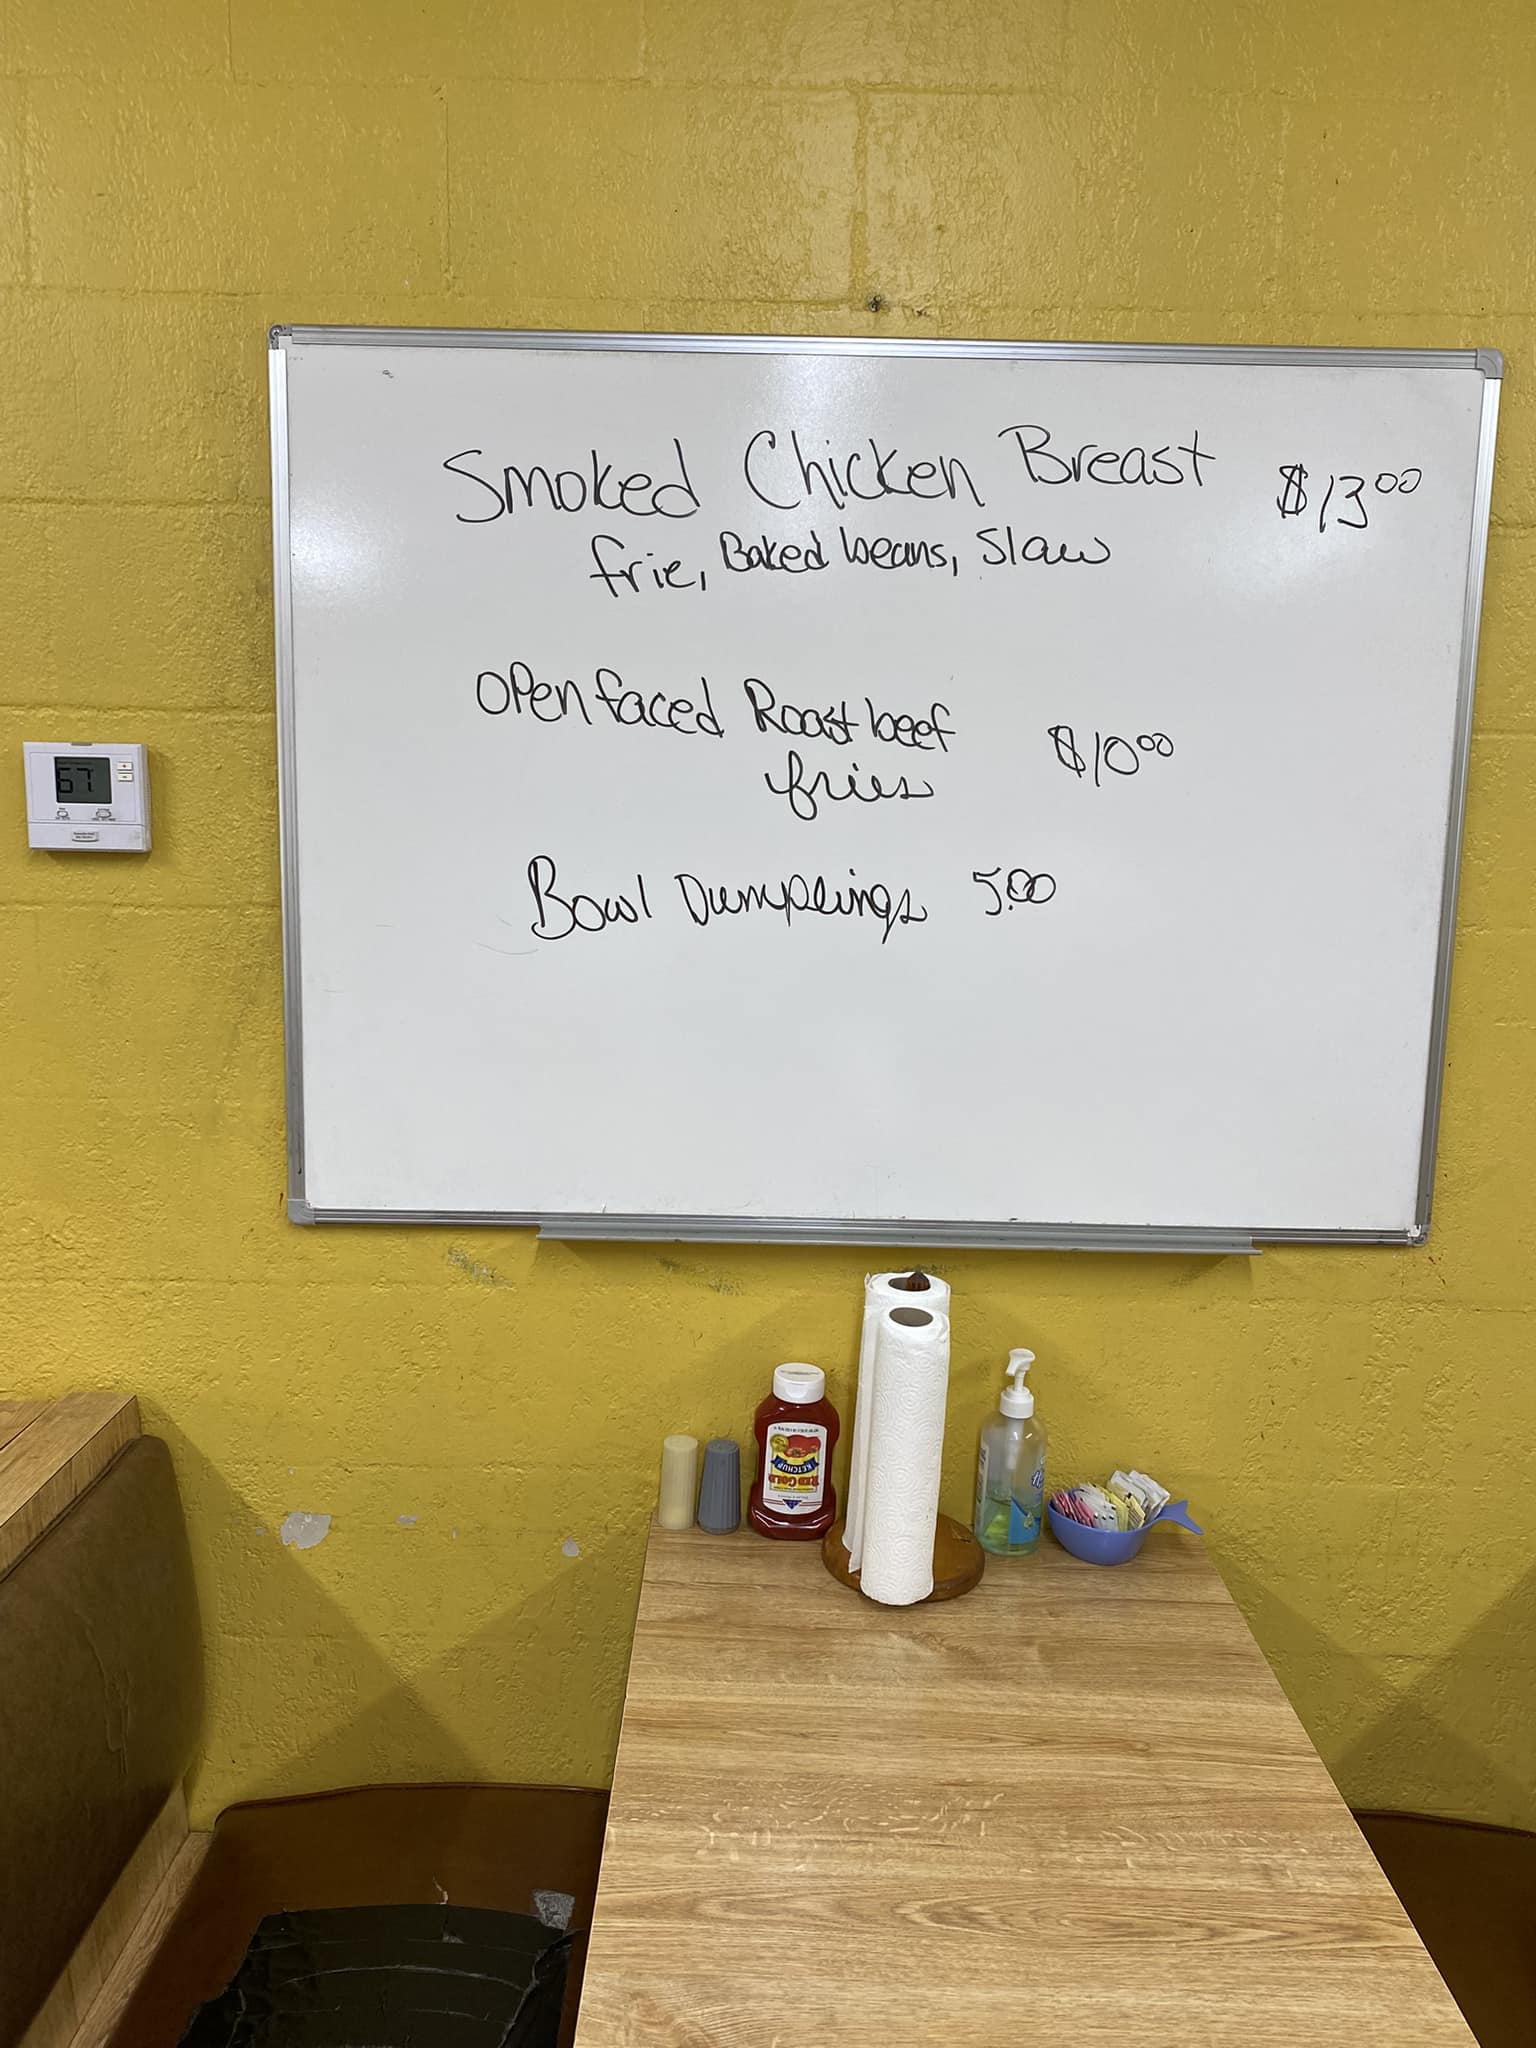 Smoked Chicken Breast $13.00
frie, Baked beans, Slaw
Open faced Roast beef $10.00
fries
Bowl Dumplings 5.00
67
RED GOLD
KETCHUP